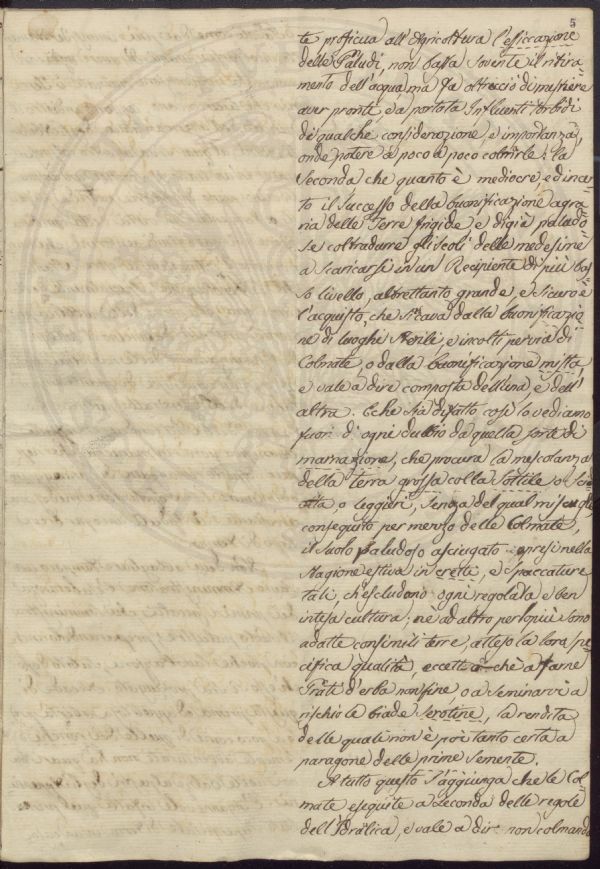 5
te proficua all'Agricoltura l'essiccazione
delle Paludi, non basta sovente il ritira=
mento dell'acqua, ma fa oltreciò di mestiere
aver pronti, e a portata Influenti torbidi
di qualche considerazione, e importanza,
onde potere a poco a poco colmarle; la
Seconda che quanto è mediocre, ed incer=
to il successo della buonificazione agra=
ria delle Terre frigide, e di già paludo=
se col tradurre gli scoli delle medesime
a scaricarsi in un Recipiente di più bas=
so livello, altrettanto grande, e sicuro è
l'acquisto, che si cava dalla buonificazio=
ne di luoghi sterili, e incolti per via di
Colmate, o dalla buonificazione mista,
e vale a dire composta dell'una, e dell'
altra. E che sia difatto così lo vediamo
fuori di ogni dubbio da quella sorte di
marnazione, che procura la mescolanza
della terra grossa colla sottile o sciol=
ta, o leggieri, senza del qual miscuglio
conseguito per mezzo delle Colmate,
il suolo paludoso asciugato apresi nella
stagione estiva in cretti, e spaccature
tali, ch'escludono ogni regolata e ben
intesa cultura; nè ad altro per lo più sono
adatte consimili terre, atteso la loro spe=
cifica qualità, eccetto che a farne
Prati d'erba non fine, o a seminarvi a
rischio le biade serotine, la rendita
delle quali non è poi tanto certa a
paragone delle prime semente.
A tutto questo s'aggiunga che le Col=
mate eseguite a seconda delle regole
dell'Idraulica, e vale a dire non colmando